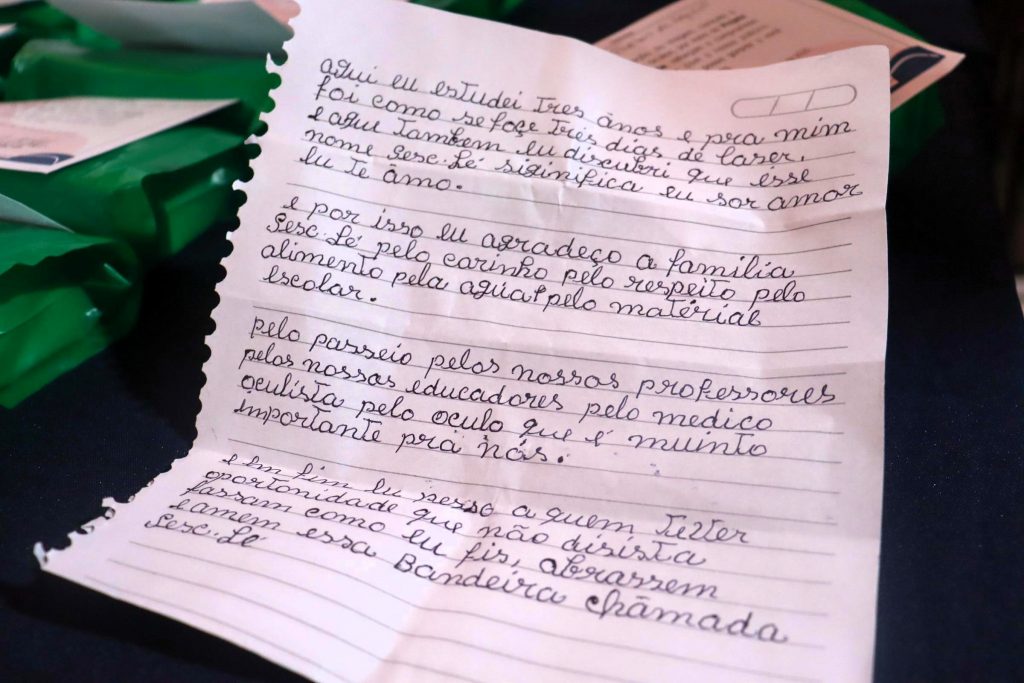 aqui eu estudei tres ânos e pra mim
foi como se foçe três dias de lazer.
e aqui também eu discubri que esse
nome Sesc.Lé siginifica eu sor amor
eu te amo.
e por isso eu agradeço a família
Sesc.Lé pelo carinho pelo respeito pelo
alimento pela agua pelo matérial
escolar.
pelo passeio pelos nossos professores
pelos nossos educadores pelo medico
oculista pelo oculo que é muinto
importante pra nós.
e em fim eu peço a quem tetter
oportonidade que não disista
fassam como eu fis, abrassem
eamem essa Bandeira châmada
Sesc.Lé